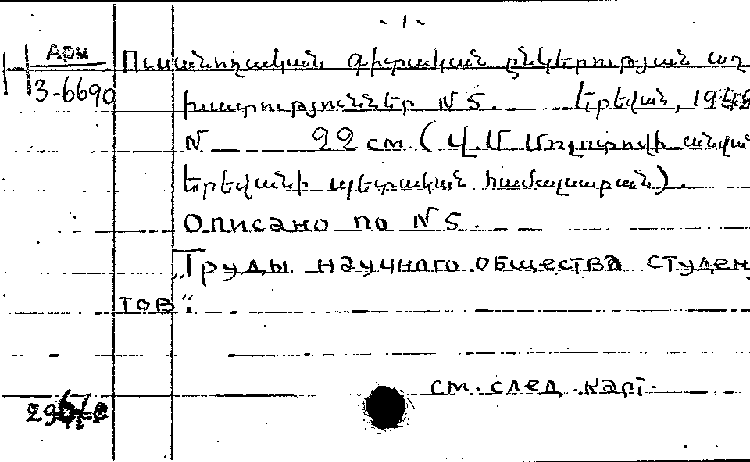 - 1 -
Арм
Ուսանողական գիտական ընկերության աշ
3-6690
խատություններ N 5. Երեվան, 19
N 22 см. (Վ. Մ. Մոլոտովի անվան
Երեվանի պետական համալսարան).
Описано по N 5.
„Труды научного общества студен
тов“.
см. след. карт.